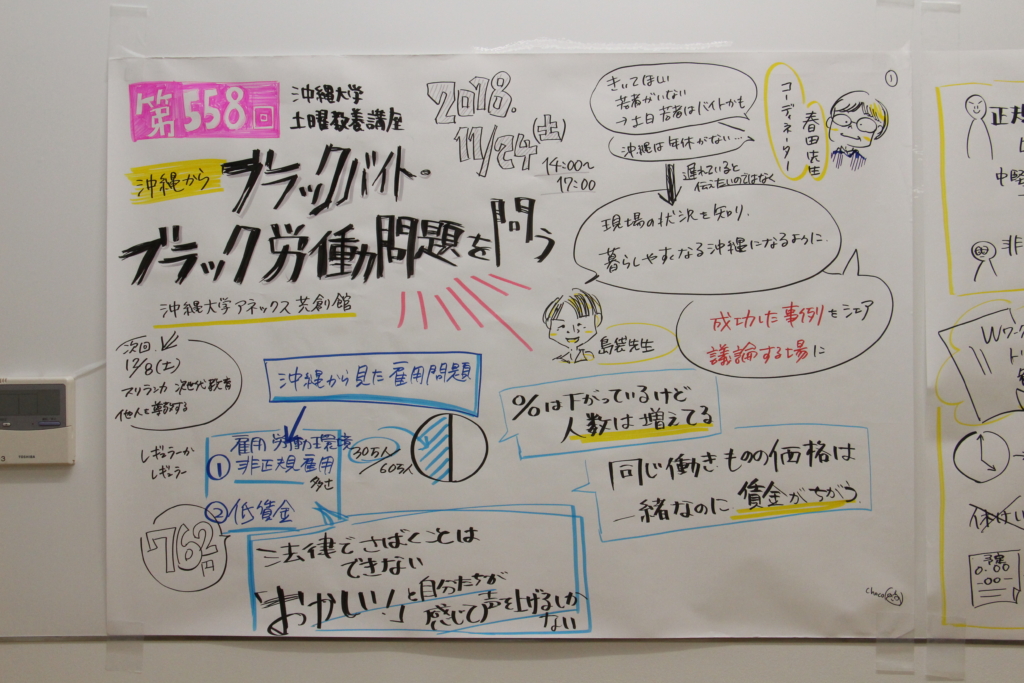 第558回
沖縄大学
土曜教養講座
2018.
11/24(土)
14:00~
17:00
沖縄から
ブラックバイト・
ブラック労働問題を問う
沖縄大学アネックス共創館
①
きいてほしい
若者がいない
→土日若者はバイトかも
沖縄は年休がない…
コーディネーター
春田先生
遅れていると
伝えたいのではなく
現場の状況を知り、
暮らしやすくなる沖縄になるように。
島袋先生
成功した事例をシェア
議論する場に
次回
12/8(土)
スリランカ 次世代教育
他人を尊敬する
沖縄から見た雇用問題
レギュラーか
レギュラー
雇用 労働環境
①非正規雇用
多さ
②低賃金
30万人/60万人
762円
%は下がっているけど
人数は増えてる
同じ働きものの価格は
一緒なのに賃金がちがう
法律でさばくことは
できない
「おかしい!」と自分たちが
感じて声を上げるしか
ない
正規
中堅
非
Wワーク
休みは
予定
0.00
-00-
TOSHIBA